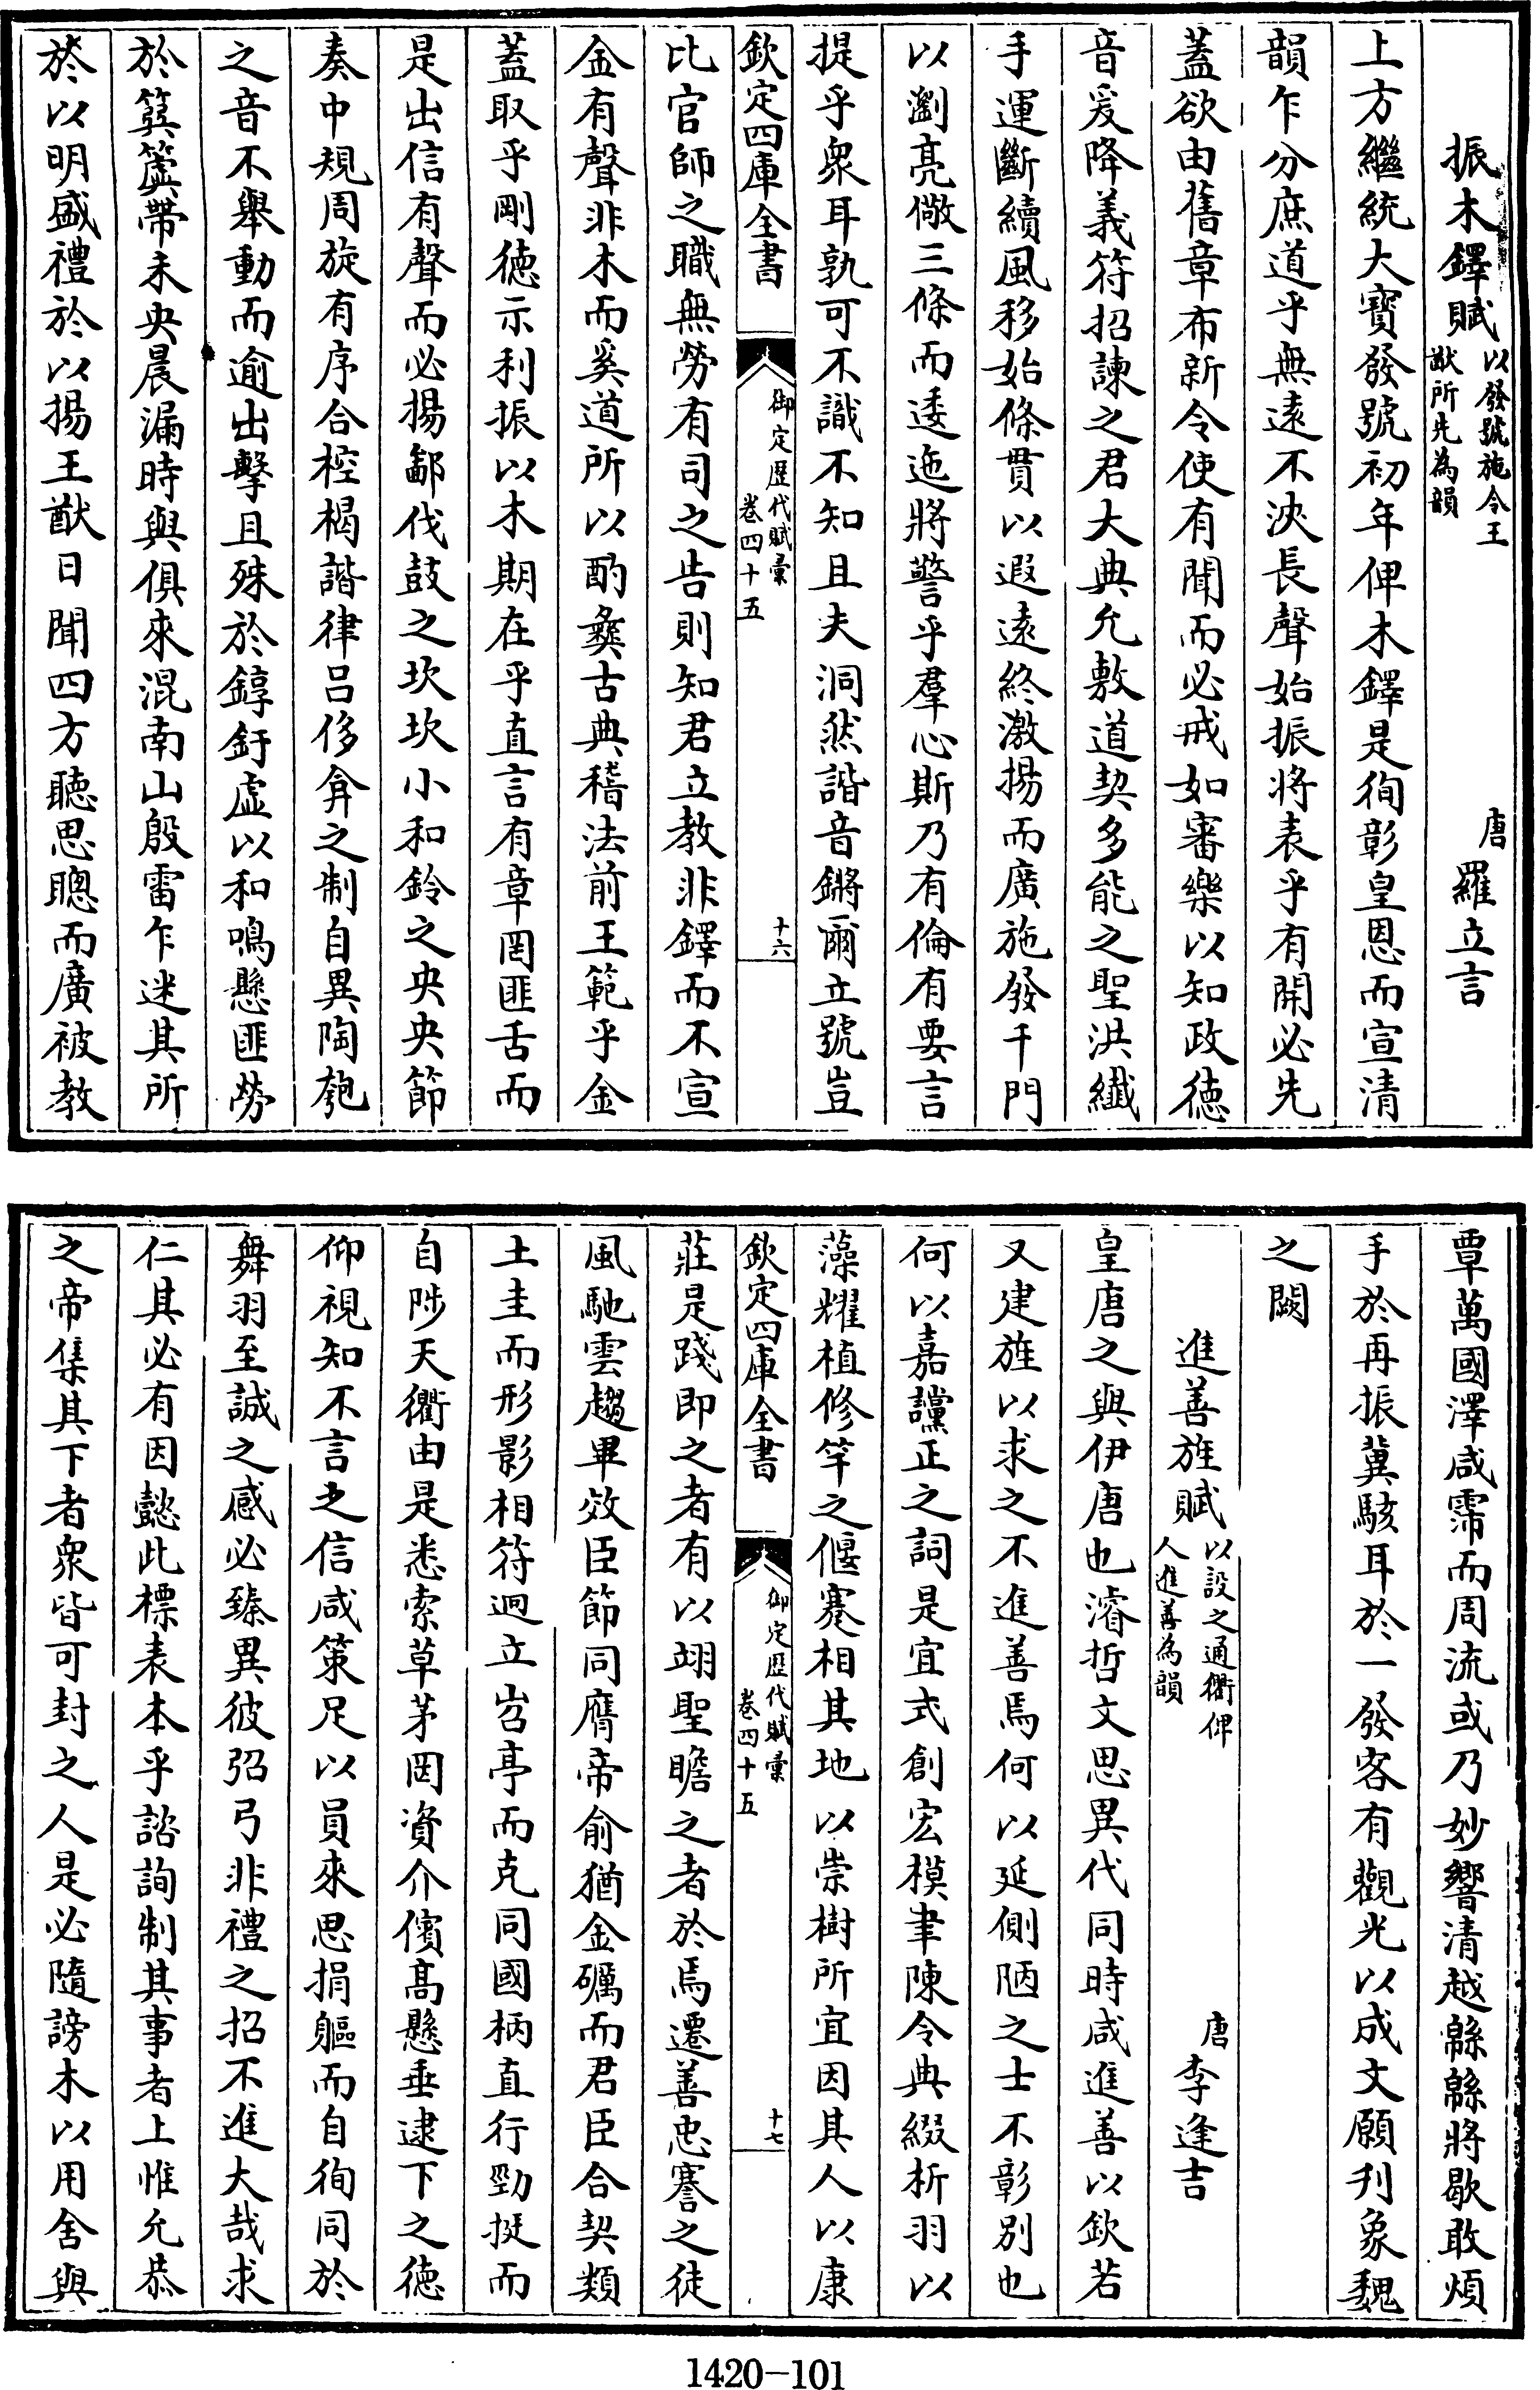 振木鐸賦以發號施令王猷所先為韻 唐羅立言
上方繼統大寶發號初年俾木鐸是徇彰皇恩而宣清
韻乍分庶道乎無遠不泱長聲始振將表乎有開必先
蓋欲由舊章布新令使有聞而必戒如審樂以知政德
音爰降義符招諫之君大典允敷道契多能之聖洪纖
手運斷續風移始條貫以遐遠終激揚而廣施發千門
以瀏亮儆三條而逶迤將警乎羣心斯乃有倫有要言
提乎衆耳孰可不識不知且夫洞然諧音鏘爾立號豈
欽定四庫全書 御定歴代賦彙 卷四十五 十六
比官師之職無勞有司之告則知君立教非鐸而不宣
金有聲非木而奚道所以酌彝古典稽法前王範乎金
蓋取乎剛德示利振以木期在乎直言有章罔匪舌而
是出信有聲而必揚鄙伐鼓之坎坎小和鈴之央央節
奏中規周旋有序合椌楬諧律呂侈弇之制自異陶匏
之音不舉動而逾出擊且殊於錞釪虛以和鳴懸匪勞
於簨簴帶未央晨漏時與俱來混南山殷雷乍迷其所
於以明盛禮於以揚王猷日聞四方聽思聰而廣被教
覃萬國澤咸霈而周流或乃妙響清越緜緜將歇敢煩
手於再振冀駭耳於一發客有觀光以成文願刋象魏
之闕
進善旌賦以設之通衢俾人進善為韻 唐李逢吉
皇唐之與伊唐也濬哲文思異代同時咸進善以欽若
又建旌以求之不進善焉何以延側陋之士不彰別也
何以嘉讜正之詞是宜式創宏模聿陳令典綴析羽以
藻耀植修竿之偃蹇相其地以崇樹所宜因其人以康
欽定四庫全書 御定歴代賦彙 卷四十五 十七
莊是踐即之者有以翊聖瞻之者於焉遷善忠謇之徒
風馳雲趨畢效臣節同膺帝俞猶金礪而君臣合契類
土圭而形影相符迥立岧亭而克同國柄直行勁挺而
自陟天衢由是悉索草茅罔資介儐高懸垂逮下之德
仰視知不言之信咸策足以員來思捐軀而自徇同於
舞羽至誠之感必臻異彼弨弓非禮之招不進大哉求
仁其必有因懿此標表本乎諮詢制其事者上惟允恭
之帝集其下者衆皆可封之人是必隨謗木以用舍與
1420-101